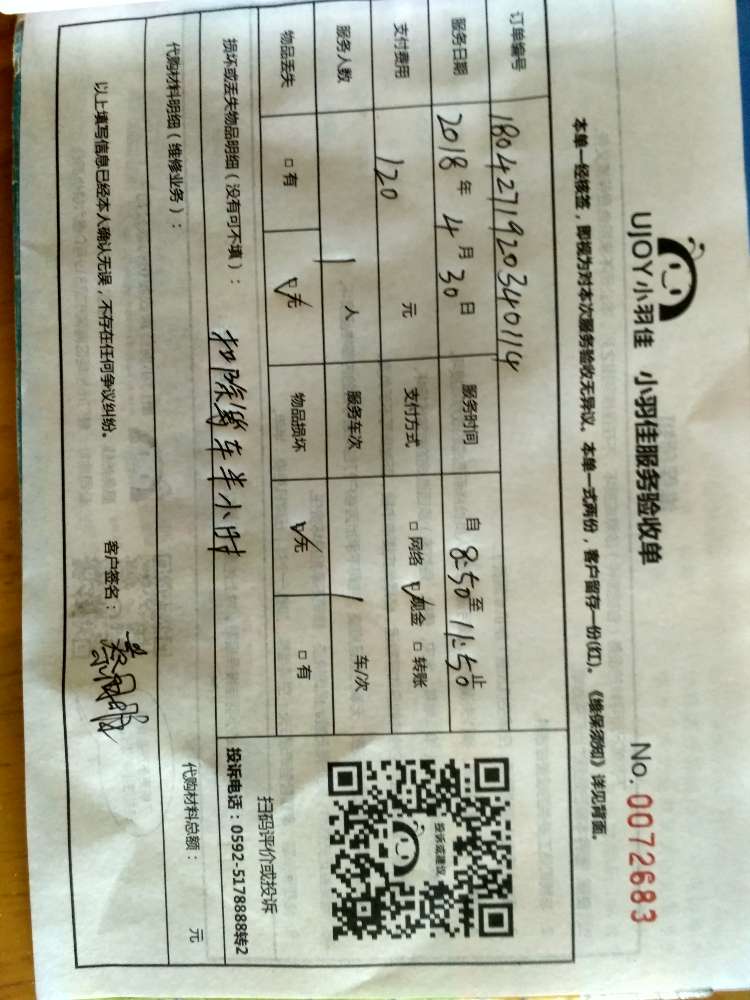 UJOY小羽佳 小羽佳服务验收单 No. 0072683
本单一经核签，即视为对本次服务验收无异议。本单一式两份，客户留存一份(红)。《维保须知》详见背面。
订单编号 180427192034 0114
服务日期 2018年4月30日 服务时间 自8:50至11:50止
支付费用 120 元 支付方式 □网络 ☑现金 □转账
服务人数 1 人 服务车次 1 车/次
物品丢失 □有 ☑无 物品损坏 ☑无 □有
损坏或丢失物品明细（没有可不填）： 扣除等车半小时
代购材料明细（维修业务）： 代购材料总额： 元
以上填写信息已经本人确认无误，不存在任何争议纠纷。 客户签名：
投诉或建议
扫码评价或投诉
投诉电话：0592-5178888转2